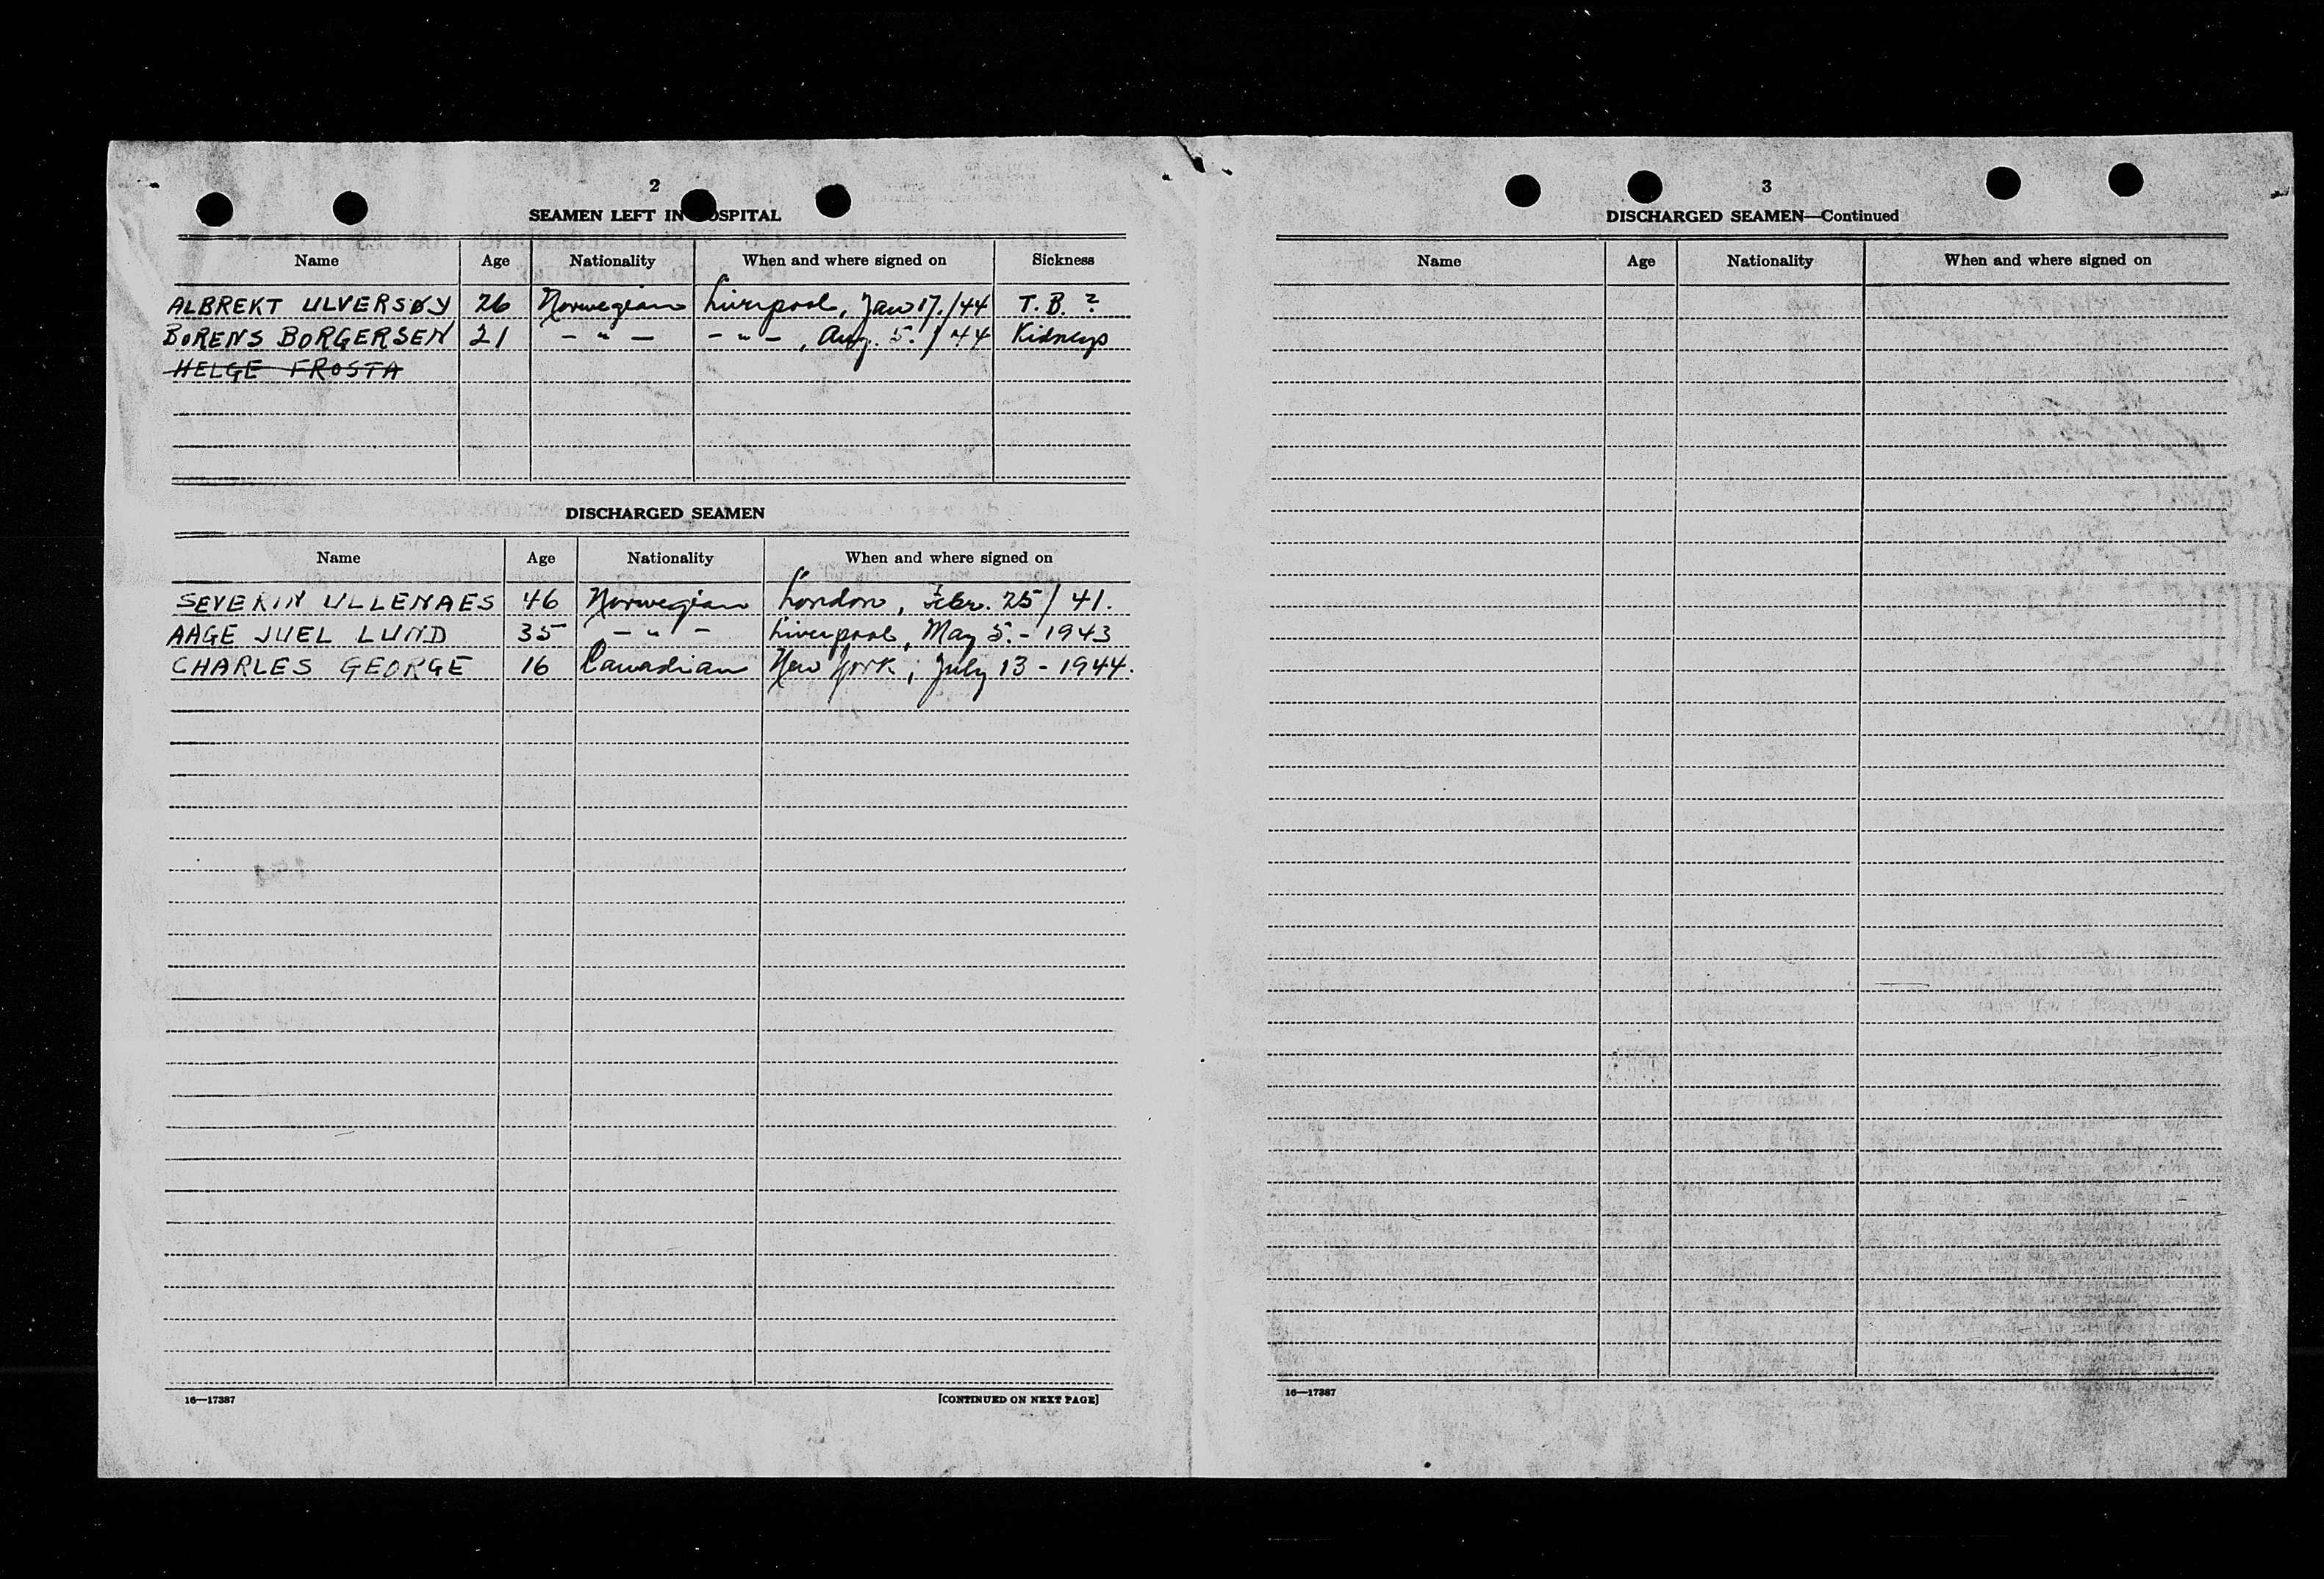 2
SEAMEN LEFT IN HOSPITAL
Name Age Nationality When and where signed on Sickness
ALBREKT ULVERSØY 26 Norwegian Liverpool, Jan 17./44 T.B. ?
BORENS BORGERSEN 21 - " - - " - , Aug. 5./44 Kidneys
HELGE FROSTA
DISCHARGED SEAMEN
Name Age Nationality When and where signed on
SEVERIN ULLENAES 46 Norwegian London, Febr. 25/41.
AAGE JUEL LUND 35 - " - Liverpool, May 5. - 1943
CHARLES GEORGE 16 Canadian New York, July 13 - 1944.
16—17387 [CONTINUED ON NEXT PAGE]
3
DISCHARGED SEAMEN—Continued
Name Age Nationality When and where signed on
16—17387